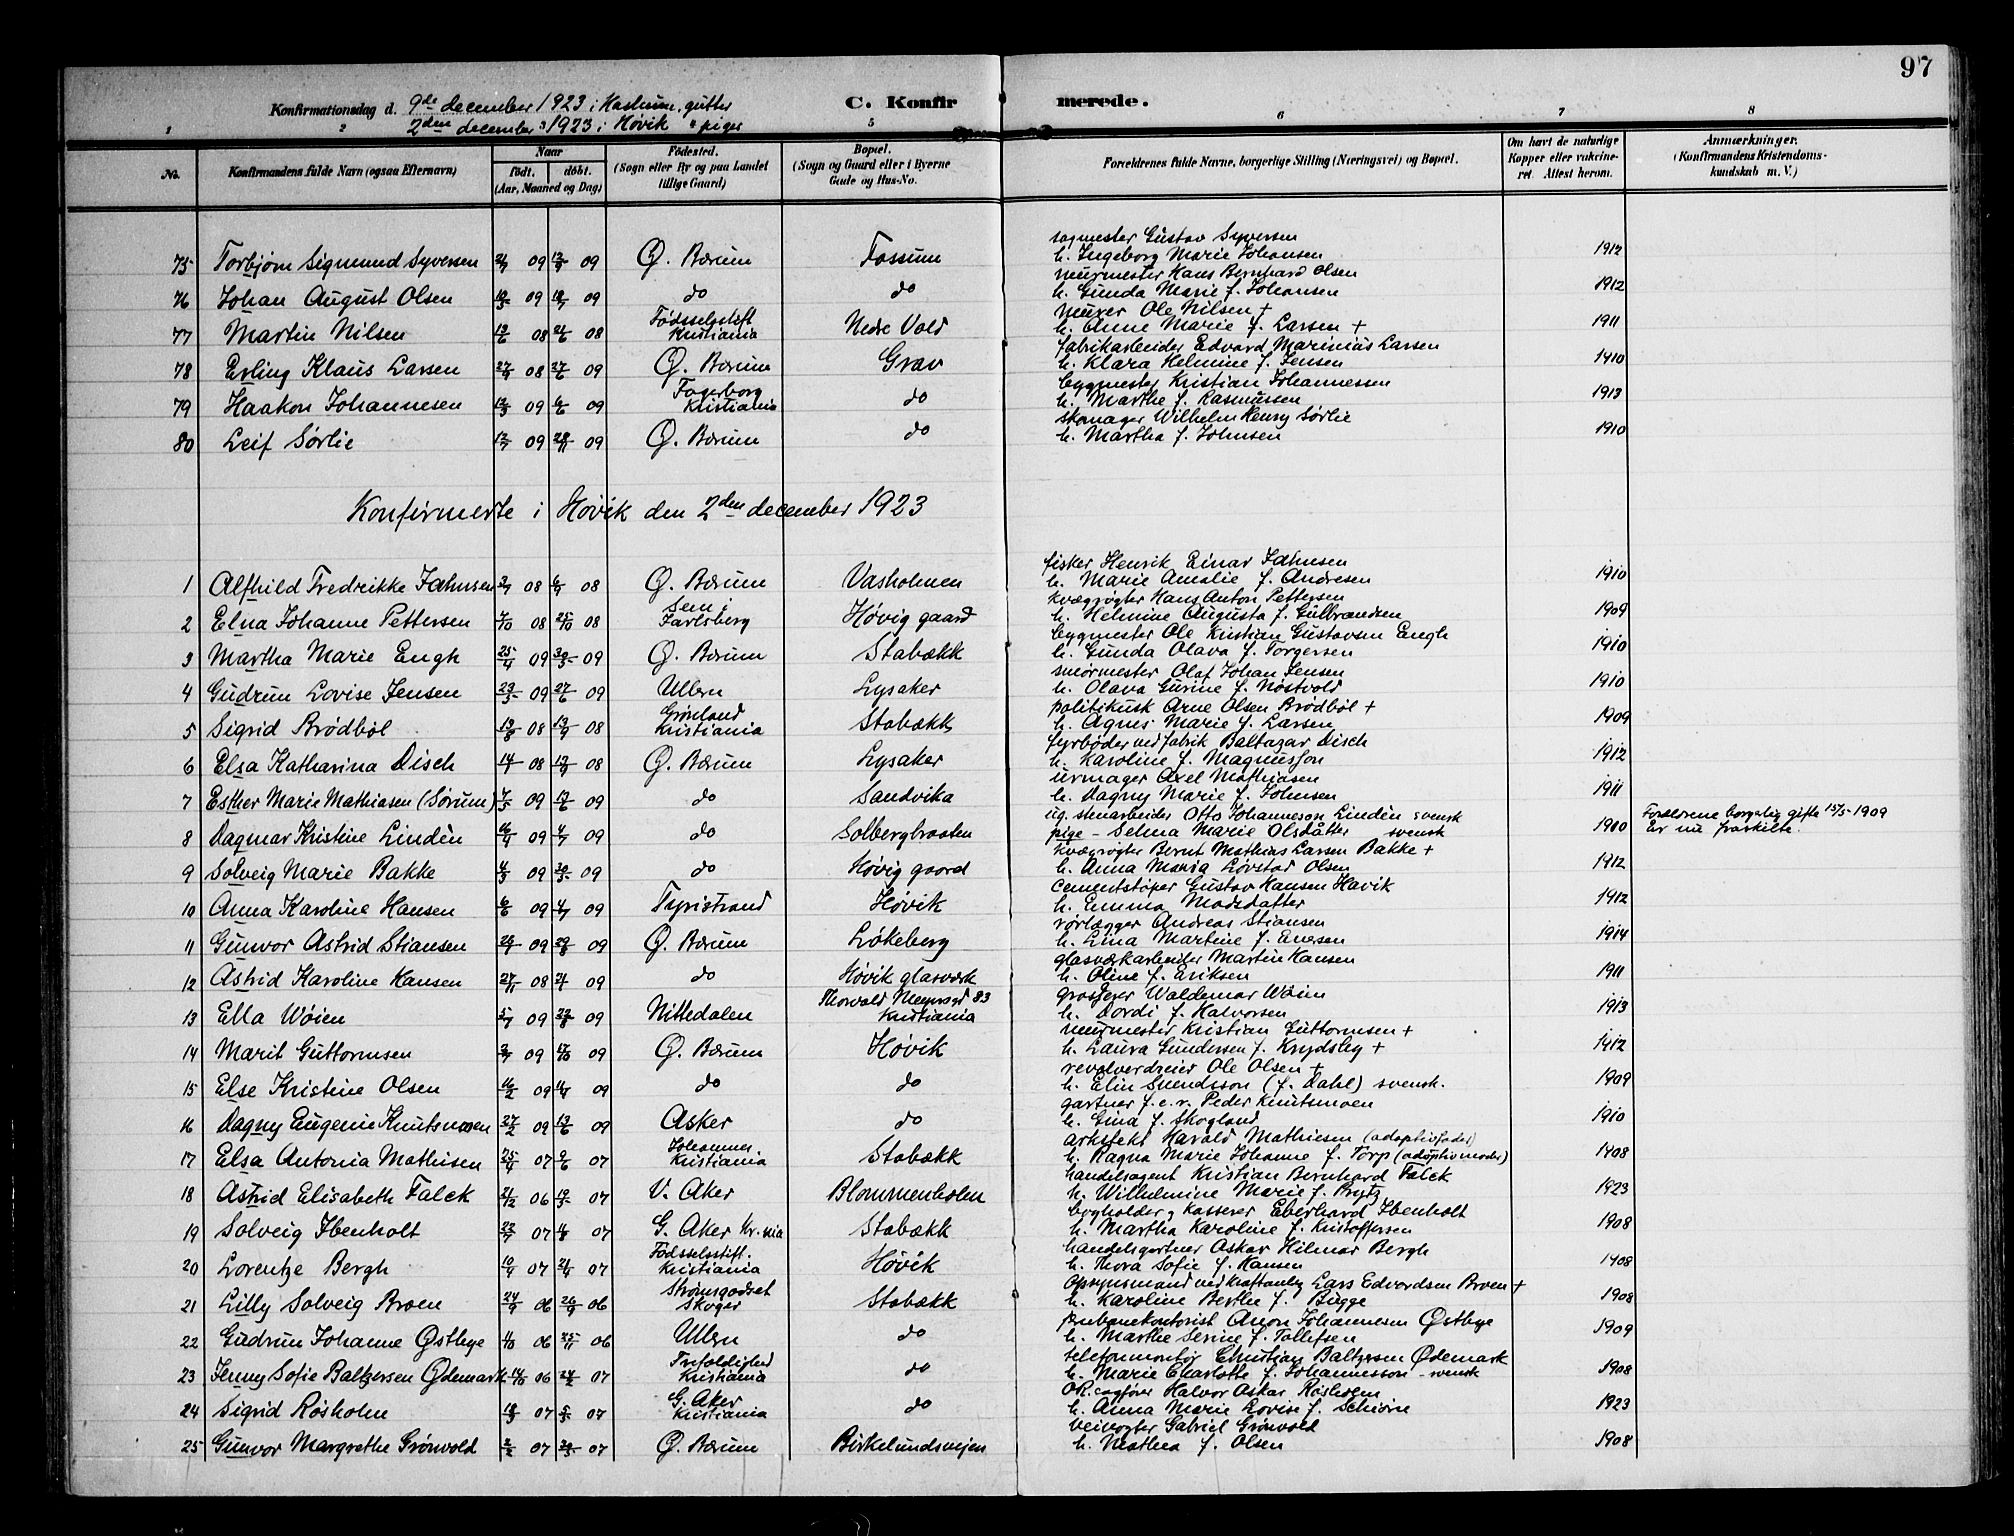 97
Konfirmationsdag d. 9de december 1923 i Haslum, gutter
2den december 1923 i Høvik " piger
C. Konfirmerede.
1 2 5 6 7 8
No. Konfirmandens fulde Navn (ogsaa Efternavn) Naar födt. döbt. (Aar, Maaned og Dag) Födested. (Sogn eller By og paa Landet tillige Gaard) Bopæl. (Sogn og Gaard eller i Byerne Gade og Hus-No. Forældrenes fulde Navne, borgerlige Stilling (Næringsvei) og Bopæl. Om havt de naturlige Kopper eller vakcineret. Attest herom. Anmærkninger. (Konfirmandens Kristendomskundskab m. V.)
75 Torbjørn Sigmund Syversen 09 09 Ø. Bærum Fossum sagmester Gustav Syversen h. Ingeborg Marie Johansen 1912
76 Johan August Olsen 09 09 do do murmester Hans Bernhard Olsen h. Gunda Marie f. Johansen 1912
77 Martin Nilsen 08 08 Födselsstift Kristiania Nedre Vold murer Ole Nilsen + h. Anne Marie f. Larsen + 1911
78 Erling Klaus Larsen 08 27/6 09 Ø. Bærum Grav fabrikarbeider Edvard Marinius Larsen h. Klara Helmine f. Jensen 1910
79 Haakon Johannesen 09 09 Fagerborg Kristiania do bygmester Kristian Johannessen h. Marthe f. Rasmussen 1913
80 Leif Sørlie 09 09 Ø. Bærum do skomager Wilhelm Henry Sørlie h. Martha f. Johnsen 1910
Konfirmerte i Høvik den 2den december 1923
1 Alfhild Fredrikke Jahnsen 08 08 Ø. Bærum Vasholmen fisker Henrik Einar Jahnsen h. Marie Amalie f. Andresen 1910
2 Elna Johanne Pettersen 08 25/10 08 Sem i Jarlsberg Høvig gaard kvægrøgter Hans Anton Pettersen h. Helmine Augusta f. Gulbrandsen 1909
3 Martha Marie Engh 25/4 09 30/5 09 Ø. Bærum Stabækk bygmester Ole Kristian Gustavsen Engh h. Gunda Olava f. Torgersen 1910
4 Gudrun Lovise Jensen 23/5 09 27/6 09 Ullern Lysaker smörmester Olaf Johan Jensen h. Olava Gurine f. Nöstvold 1910
5 Sigrid Brödböl 08 08 Grönland Kristiania Stabækk politikusk Arne Olsen Brödböl + h. Agnes Marie f. Larsen 1909
6 Elsa Katharina Disch 08 08 Ø. Bærum Lysaker fyrbøder ved fabrik Baltazar Disch h. Karoline f. Magnusson 1912
7 Esther Marie Mathiasen (Sørum) 09 13/6 09 do Sandvika urmager Axel Mathiasen h. Dagny Marie f. Johnsen 1911
8 Dagmar Kristine Lindén 09 4/7 09 do Solbergbraaten ug. stenarbeider Otto Johanneson Lindén svensk pige - Selma Marie Olsdåtter svensk 1910 Forældrene borgelig gifte 15/5-1909 Er nu fraskilte.
9 Solveig Marie Bakke 09 09 do Høvig gaard kvægrøgter Bernt Mathias Larsen Bakke + h. Anna Maria Løvstad Olsen 1912
10 Anna Karoline Hansen 6/6 09 4/7 09 Tyristrand Høvik cementstøper Gustav Hansen Havik h. Emma Madsdatter 1912
11 Gunvor Astrid Stiansen 09 09 Ø. Bærum Løkeberg rørlægger Andreas Stiansen h. Lina Martine f. Enesen 1914
12 Astrid Karoline Hansen 27/11 08 09 do Høvik glasværk glasværkarbeider Martin Hansen h. Oline f. Eriksen 1911
13 Ella Wöien 09 09 Nittedalen Thorvald Meyersgd 83 Kristiania grosserer Waldemar Wöien h. Dordi f. Halvorsen 1913
14 Marit Guttormsen 09 17/10 09 Ø. Bærum Høvik murmester Kristian Guttormsen + h. Laura Gundersen f. Krydsby + 1912
15 Else Kristine Olsen 16/2 09 09 do do revolverdreier Ole Olsen + h. Elin Svendsson (f. Dahl) svensk. 1909
16 Dagny Eugenie Knutsmoen 27/2 09 13/6 09 Asker do gartner f.e.v. Peder Knutsmoen h. Gina f. Skogland 1910
17 Elsa Antonia Mathisen 25/4 07 9/6 07 Johannes Kristiania Stabækk arkitekt Harald Mathiesen (adoptivfader) h. Ragna Marie Johanne f. Torp (adoptivmoder) 1908
18 Astrid Elisabeth Falck 21/12 06 07 V. Aker Blommenholm handelsagent Kristian Bernhard Falck h. Wilhelmine Marie f. Prytz 1923
19 Solveig Ibenholt 07 07 G. Aker Kr.nia Stabækk bogholder og kasserer Eberhard Ibenholt h. Martha Karoline f. Kristoffersen 1908
20 Lorentze Bergh 07 07 Födselsstift. Kristiania Høvik handelsgartner Askar Hilmar Bergh h. Thora Sofie f. Hansen 1908
21 Lilly Solveig Broen 06 06 Strömsgodset Skoger Stabækk opsynsmand ved kraftanlæg Lars Edvardsen Broen + h. Karoline Berthe f. Bugge 1908
22 Gudrun Johanne Østbye 06 25/11 06 Ullern do Anon Johannesen Østbye h. Marthe Serine f. Tollefsen 1909
23 Jenny Sofie Baltzersen Ødemark 14/10 06 24/2 07 Trefoldighed Kristiania do telefonmontör Christian Baltzersen Ødemark h. Marie Charlotte f. Johannesson - svensk 1908
24 Sigrid Røsholm 07 07 G. Aker Kristiania do OR.sagfører Halvor Askar Røsholm h. Anna Marie Lovise f. Schiörn 1923
25 Gunvor Margrethe Grönvold 2/2 07 07 Ø. Bærum Birkelundsveien veivogter Gabriel Grönvold h. Mathea f. Olsen 1908